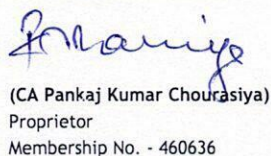 (CA Pankaj Kumar Chourasiya)
Proprietor
Membership No. - 460636